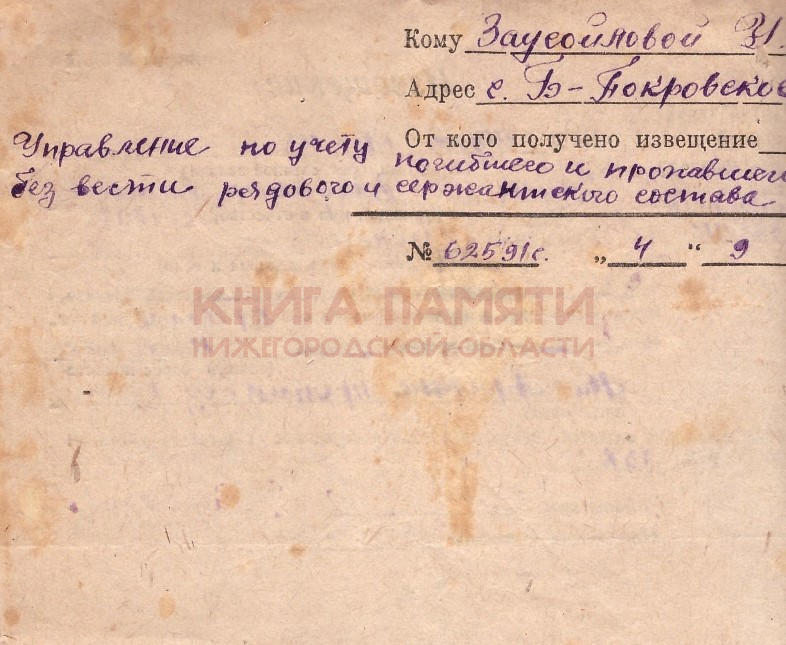 Кому Заусайловой
Адрес с. Б-Покровское
От кого получено извещение
Управление по учету погибшего и пропавшего
без вести рядового и сержантского состава
№ 62591с. „ 4 “ 9
КНИГА ПАМЯТИ
НИЖЕГОРОДСКОЙ ОБЛАСТИ